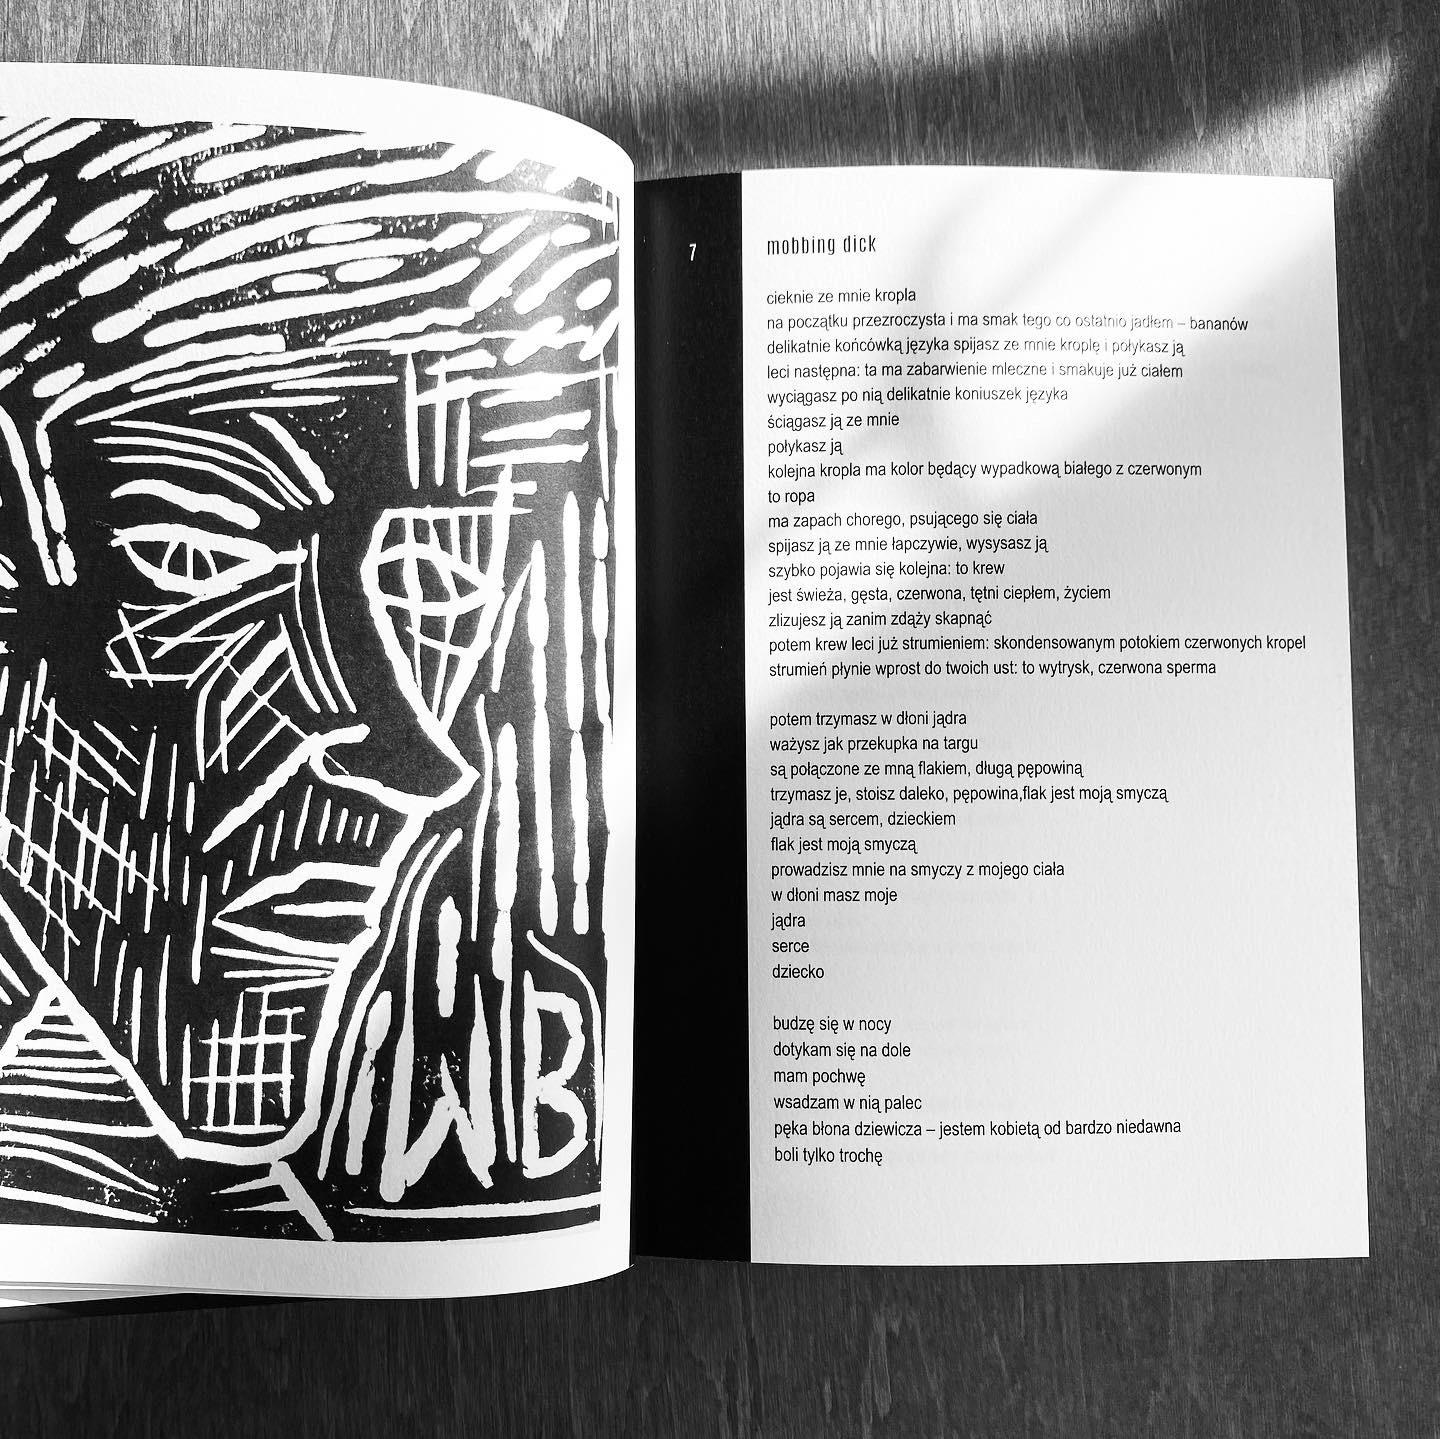 WB
7
mobbing dick
cieknie ze mnie kropla
na początku przezroczysta i ma smak tego co ostatnio jadłem – bananów
delikatnie końcówką języka spijasz ze mnie kroplę i połykasz ją
leci następna: ta ma zabarwienie mleczne i smakuje już ciałem
wyciągasz po nią delikatnie koniuszek języka
ściągasz ją ze mnie
połykasz ją
kolejna kropla ma kolor będący wypadkową białego z czerwonym
to ropa
ma zapach chorego, psującego się ciała
spijasz ją ze mnie łapczywie, wysysasz ją
szybko pojawia się kolejna: to krew
jest świeża, gęsta, czerwona, tętni ciepłem, życiem
zlizujesz ją zanim zdąży skapnąć
potem krew leci już strumieniem: skondensowanym potokiem czerwonych kropel
strumień płynie wprost do twoich ust: to wytrysk, czerwona sperma
potem trzymasz w dłoni jądra
ważysz jak przekupka na targu
są połączone ze mną flakiem, długą pępowiną
trzymasz je, stoisz daleko, pępowina,flak jest moją smyczą
jądra są sercem, dzieckiem
flak jest moją smyczą
prowadzisz mnie na smyczy z mojego ciała
w dłoni masz moje
jądra
serce
dziecko
budzę się w nocy
dotykam się na dole
mam pochwę
wsadzam w nią palec
pęka błona dziewicza – jestem kobietą od bardzo niedawna
boli tylko trochę